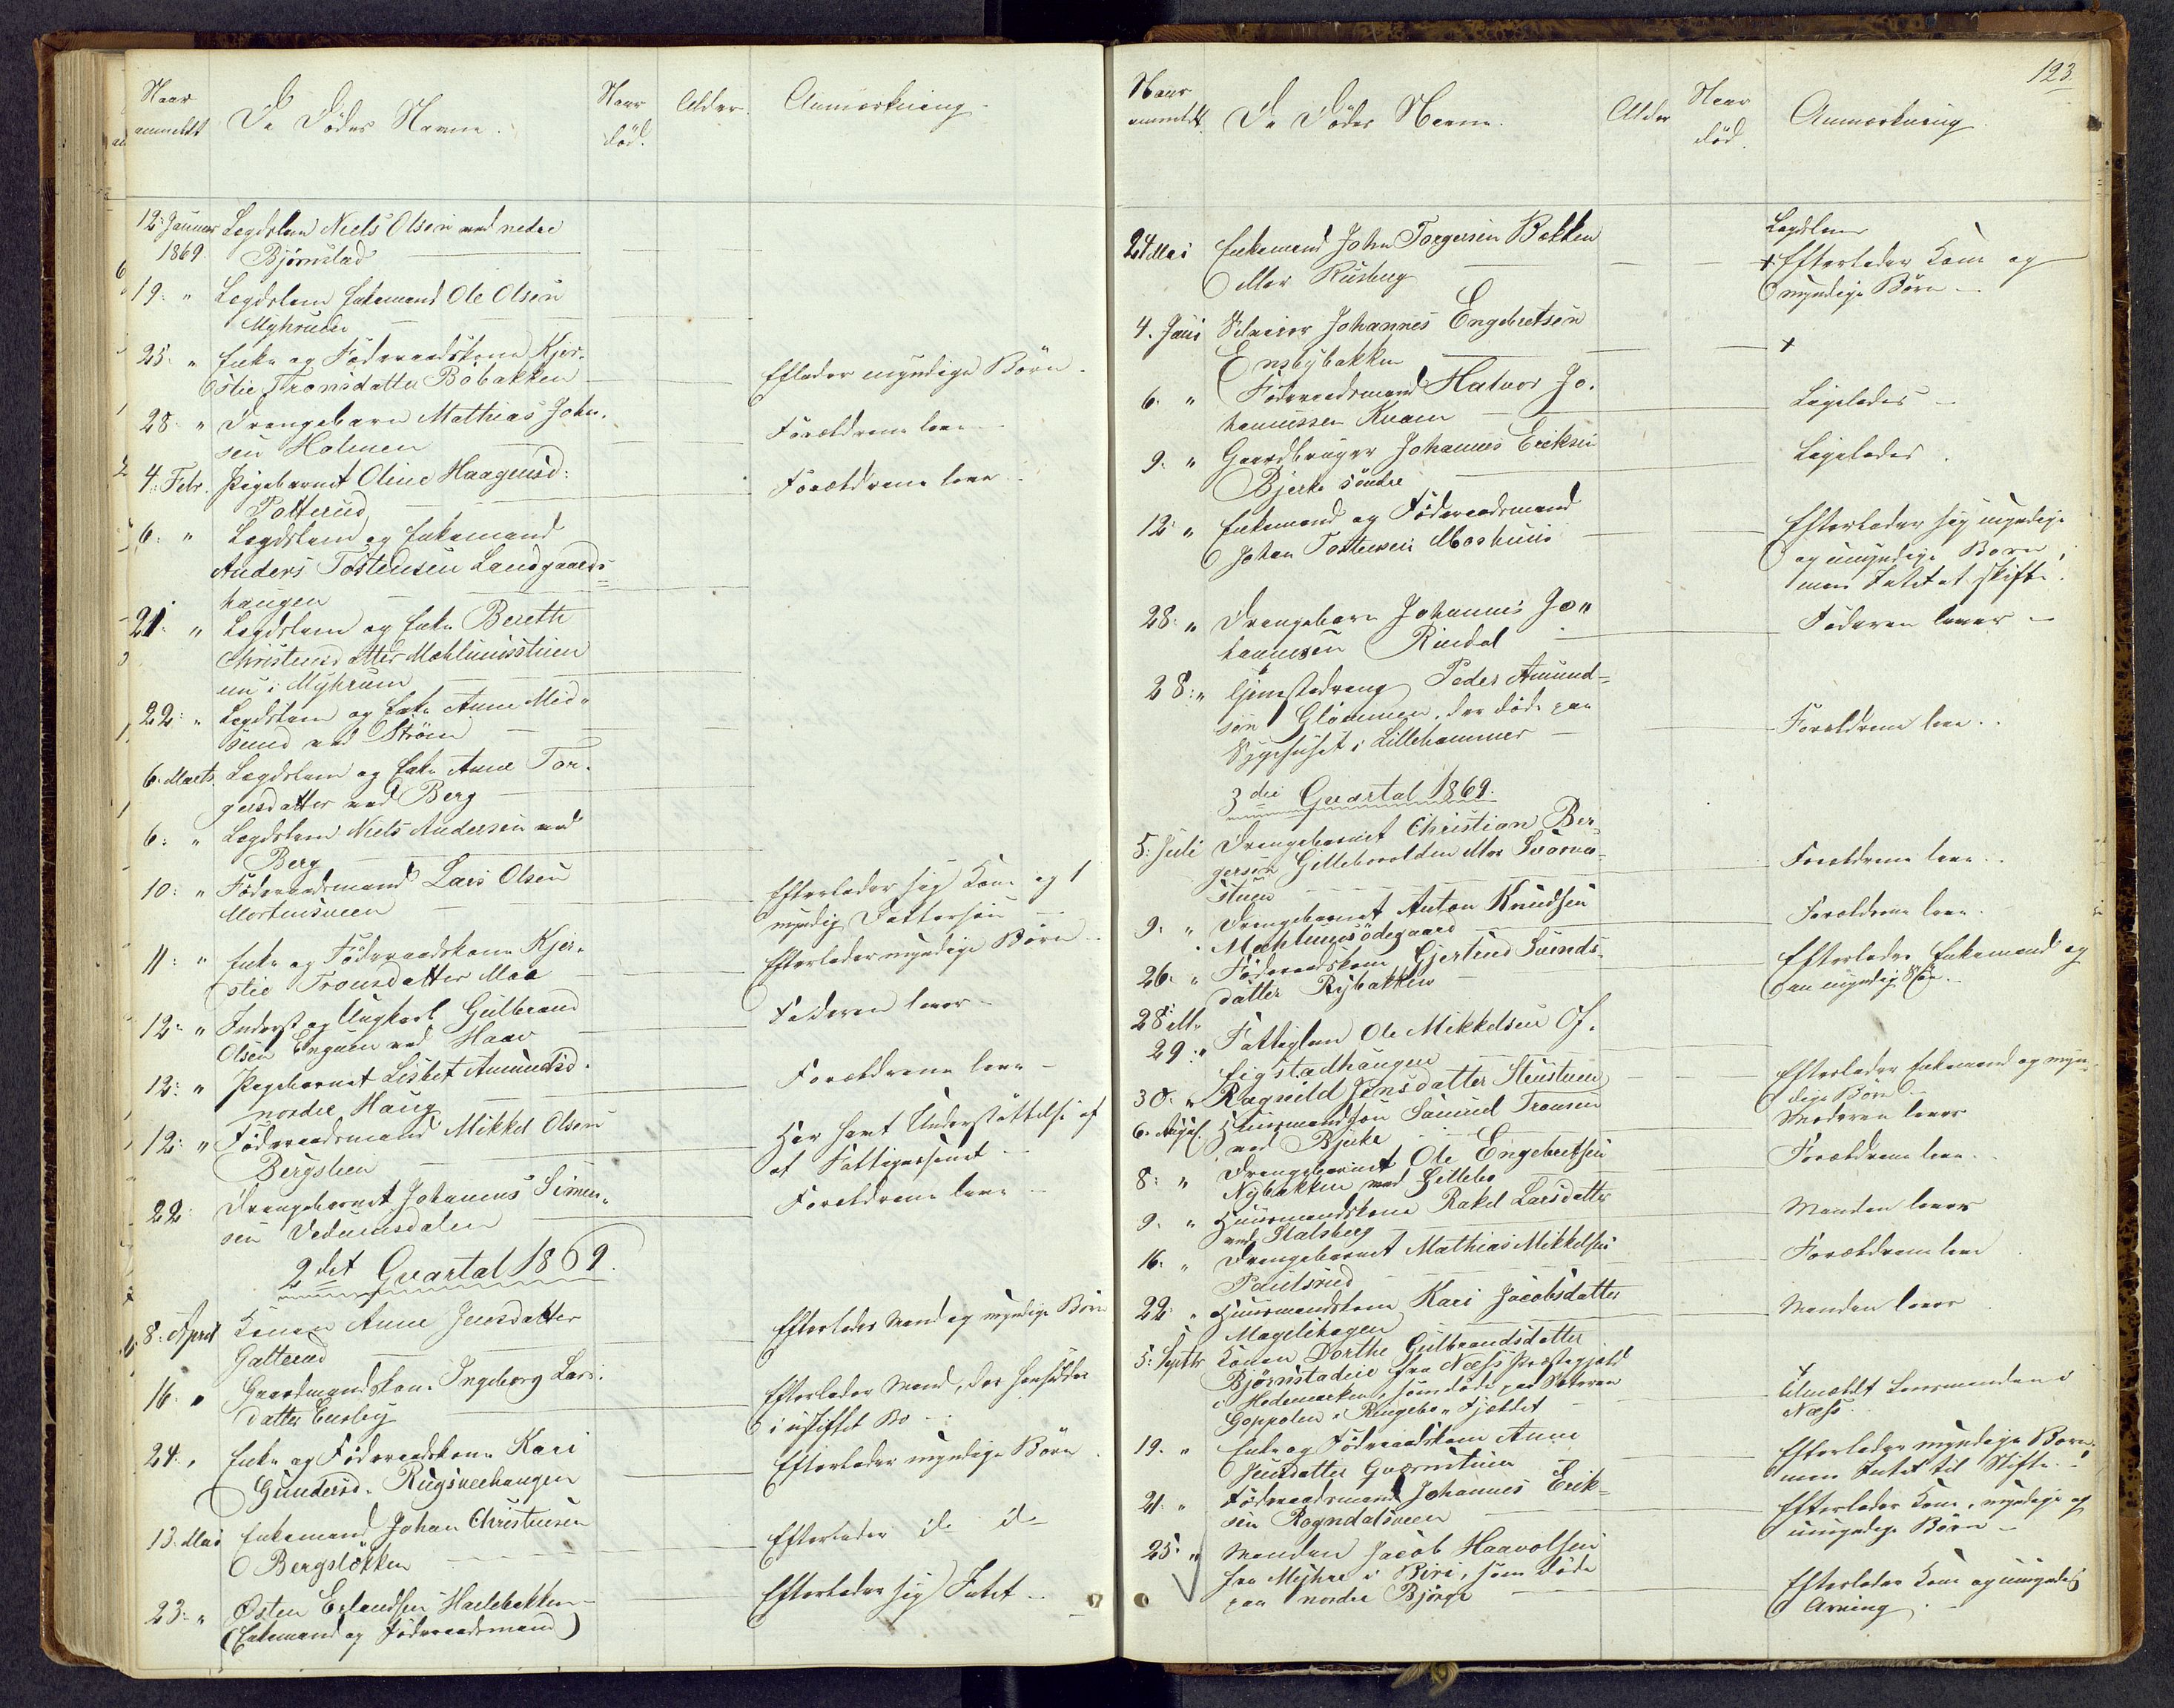 Naar
anmeldt
De Dødes Navne.
Naar
død.
Alder.
Anmærkning
12: Januar Lægdslem Niels Olsen ved nedre
1869. Bjørnstad
19. " Lægdslem Enkemand Ole Olsen
Myhrudse
25. " Enke og Føderaadskone Kjer-
stie Tronsdatter Bøbakken
Eflader myndige Børn.
28. " Drengebarn Mathias Johan-
sen Holmen
Forældrene leve
4: Febr. Pigebarnet Oline Haagensd:
Potterud
Forældrene leve
6. " Lægdslem og Enkemand
Anders Tostensen Landgaards-
haugen
21. " Lægdslem og Enke Berette
Christensdatter Mæhlumsstuen
nu i Myhrum
22: " Lægdslem og Enke Anne Mid-
sund ved Strøm
6. Marts. Lægdslem og Enke Anne Tor-
gersdatter ved Berg
6: " Lægdslem Niels Andersen ved
Berg
10: " Føderaadsmand Lars Olsen
Mortensveen
Efterlader sig Kone og 1
myndig Dattersøn
11: " Enke og Føderaadskone Kjer-
stie Tronsdatter Moe
Efterlader myndige Børn
12: " Inderst og Ungkarl Gulbrand
Olsen Enguen ved Haav
Faderen lever
12: " Pigebarnet Lisbet Amundsd.
nordre Haug
Forældrene leve
12: " Føderaadsmand Mikkel Olsen
Bergslien
Har havt Understøttelse af
af Fattigvæsenet
22: Drengebarnet Johannes Simen-
sen Vedumsdalen
Forældrene leve
2det Qvartal 1869.
8. April Konen Anne Jensdatter
Gatterud
Efterlader Mand og myndige Børn
16. " Gaardmandskone Ingeborg Lars-
datter Ensby
Efterlader Mand, der hensidder
i uskiftet Bo
24. " Enke og Føderaadskone Kari
Gundersd. Rugsveehaugen
Efterlader myndige Børn
13. Mai Enkemand Johan Christensen
Bergsløkken
Efterlader do do
23. " Østen Erlandsen Haelebakken
(Enkemand og Føderaadsmand)
Efterlader sig Intet
123.
Naar
anmeldt.
De Dødes Navne.
Alder
Naar
død.
Anmærkning
24 Mai Enkemand John Torgersen Bakken
eller Rusberg
Lægdslem
+ Efterlader Kone og
myndige Børn
4. Juni Selveier Johannes Engebretsen
Ensbybakken
+
6. " Føderaadsmand Halvor Jo-
hannessen Kvam
Ligeledes
9. " Gaardbruger Johannes Eriksen
Bjerke søndre
Ligeledes
12. " Enkemand og Føderaadsmand
Johan Tostensen Moshuus
Efterlader sig myndige
og umyndige Børn,
men Intet at skifte.
28: " Drengebarn Johannes Jo-
hannesen Rindal
Faderen lever
28: " Tjenestedreng Peder Amund-
sen Glømmen, der døde paa
Sygehuset i Lillehammer
Forældrene leve
3die Qvartal 1869.
5. Juli Drengebarnet Christian Ber-
gersen Gillebovolden eller Svarve-
stuen
Forældrene leve
9. " Drengebarnet Anton Knudsen
Mæhlumsødegaard
Forældrene leve
26. " Føderaadskone Gjertrud Svends-
datter Rybakken
Efterlader Enkemand og
en myndig Søn
28. M.
29. " Fattiglem Ole Mikkelsen Of-
figstadhaugen
30. " Ragnild Jensdatter Steestuen
Efterlader Enkemand og myn-
dige Børn
6. August. Huusmandsøn Samuel Tronsen
ved Bjerke
Moderen lever
8: " Drengebarnet Ole Engebretsen
Nybakken ved Gillebo
Forældrene leve
9. " Huusmandskone Rakel Larsdatter
ved Stalsberg
Manden lever
16. " Drengebarnet Mathias Mikkelsen
Paulsrud
Forældrene leve
22. " Huusmandskone Kari Jacobsdatter
Magelihagen
Manden lever
5: Septbr Konen Dorthe Gulbrandsdatter
Bjørnstadeie fra Næss Præstegjæld
i Hedemarken, som døde paa Sæteren
Goppolen i Ringebo-Fjeldet
+
tilmældt Lensmanden i
Næss.
19. " Enke og Føderaadskone Anne
Jensdatter Qværnstuen
Efterlader myndige Børn
men Intet til Skifte
21. " Føderaadsmand Johannes Erik-
sen Rogndalsveen
Efterlader Kone, myndige og
umyndige Børn
25. " Manden Jacob Haavolsen
fra Myhre i Biri, som døde
paa nordre Bjørge
Efterlader Kone og umyndig
Arving